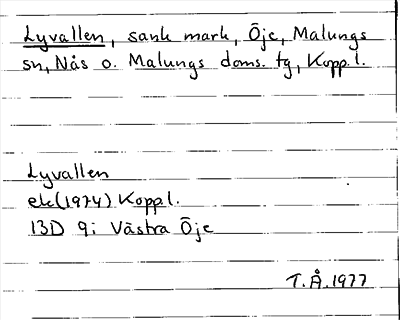 Lyvallen, sank mark, Öje, Malungs
sn, Nås o. Malungs doms. tg, Kopp. l.
Lyvallen
ek (1974) Koppl.
13D 9i Västra Öje
T.Å. 1977